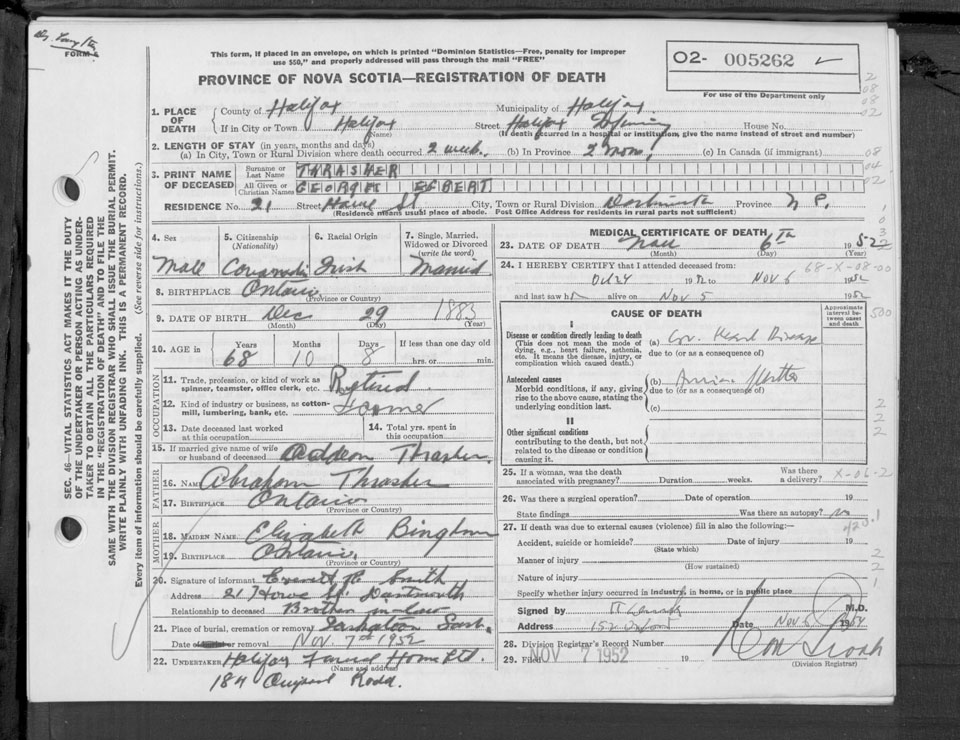 FORM 6
This form, if placed in an envelope, on which is printed "Dominion Statistics—Free, penalty for improper
use $50," and properly addressed will pass through the mail "FREE"
PROVINCE OF NOVA SCOTIA—REGISTRATION OF DEATH
O2- 005262
For use of the Department only
1. PLACE OF DEATH County of Halifax Municipality of Halifax
If in City or Town Halifax (Name) Street Halifax Infirmary House No.
(If death occurred in a hospital or institution, give the name instead of street and number)
2. LENGTH OF STAY (in years, months and days)
(a) In City, Town or Rural Division where death occurred 2 week. (b) In Province 2 Mons. (c) In Canada (if immigrant)
3. PRINT NAME OF DECEASED Surname or Last Name THRASHER
All Given or Christian Names GEORGE EGBERT
RESIDENCE No. 21 Street Hawe St City, Town or Rural Division Dartmouth Province N
(Residence means usual place of abode. Post Office Address for residents in rural parts not sufficient)
4. Sex 5. Citizenship (Nationality) 6. Racial Origin 7. Single, Married, Widowed or Divorced (write the word)
Male Irish Married
8. BIRTHPLACE Ontario
(Province or Country)
9. DATE OF BIRTH Dec 29 1883
(Month) (Day) (Year)
10. AGE in Years Months Days If less than one day old
68 0 8 hrs. or min.
OCCUPATION
11. Trade, profession, or kind of work as spinner, teamster, office clerk, etc. Retired
12. Kind of industry or business, as cotton-mill, lumbering, bank, etc. Farmer
13. Date deceased last worked at this occupation 14. Total yrs. spent in this occupation
15. If married give name of wife or husband of deceased Thrasher
FATHER
16. NAME Abraham Thrasher
17. BIRTHPLACE Ontario
(Province or Country)
MOTHER
18. MAIDEN NAME Elizabeth Bingham
19. BIRTHPLACE Ontario
(Province or Country)
20. Signature of informant Smith
Address 21 Howe St. Dartmouth
Relationship to deceased Brother in-law
21. Place of burial, cremation or removal Saskatoon Sask.
Date of burial or removal NOV. 7th 1952
22. UNDERTAKER Halifax Funeral Home Ltd.
(Name and address)
184
MEDICAL CERTIFICATE OF DEATH
23. DATE OF DEATH Nov 6th 1952
(Month) (Day)
24. I HEREBY CERTIFY that I attended deceased from:
Oct 24 1952 to Nov 6 1952
68-X-08-00
and last saw h alive on Nov 5 1952
CAUSE OF DEATH
Approximate interval between onset and death
I
Disease or condition directly leading to death
(This does not mean the mode of dying, e.g., heart failure, asthenia, etc. It means the disease, injury, or complication which caused death.)
(a) Cor. Heart Disease
due to (or as a consequence of)
Antecedent causes
Morbid conditions, if any, giving rise to the above cause, stating the underlying condition last.
(b)
due to (or as a consequence of)
(c)
II
Other significant conditions
contributing to the death, but not related to the disease or condition causing it.
25. If a woman, was the death associated with pregnancy? Duration weeks. Was there a delivery?
X-06-2
26. Was there a surgical operation? Date of operation 19
State findings Was there an autopsy? no
420.1
27. If death was due to external causes (violence) fill in also the following:—
Accident, suicide or homicide? Date of injury 19
(State which)
Manner of injury
(How sustained)
Nature of injury
Specify whether injury occurred in industry, in home, or in public place
Signed by M.D.
Address Date Nov 6
28. Division Registrar's Record Number
29. Filed NOV 7 1952 19
(Division Registrar)
SEC. 46—VITAL STATISTICS ACT MAKES IT THE DUTY
OF THE UNDERTAKER OR PERSON ACTING AS UNDER-
TAKER TO OBTAIN ALL THE PARTICULARS REQUIRED
IN THE "REGISTRATION OF DEATH" AND TO FILE THE
SAME WITH THE DIVISION REGISTRAR WHO SHALL ISSUE THE BURIAL PERMIT.
WRITE PLAINLY WITH UNFADING INK. THIS IS A PERMANENT RECORD.
Every item of information should be carefully supplied. (See reverse side for instructions.)